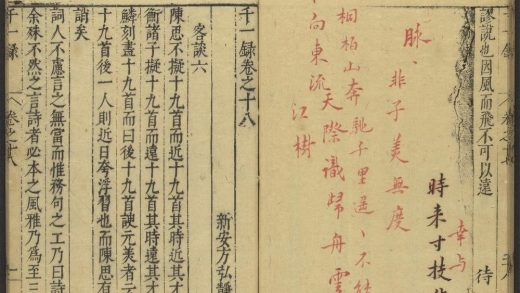 卷之十七
謬說也因風而飛不可以遠
待
幸与
時来寸技
脉、非子美無度
桐柏山奔馳千里遥、不
向東流天際識歸舟雲
江樹
千一録卷之十八
新安方弘靜
客談六
陳思不擬十九首而近十九首其時近其才
衡諸子擬十九首而遠十九首其時遠其才
鱗刻畫十九首而曰後十九首諛元美者云
十九首後一人則近日夸浮習也而陳思有
誚矣
詞人不慮言之無當而惟務句之工乃曰詩
余殊不然之言詩者必本之風雅乃爲至三
千一録
卷之十八
一